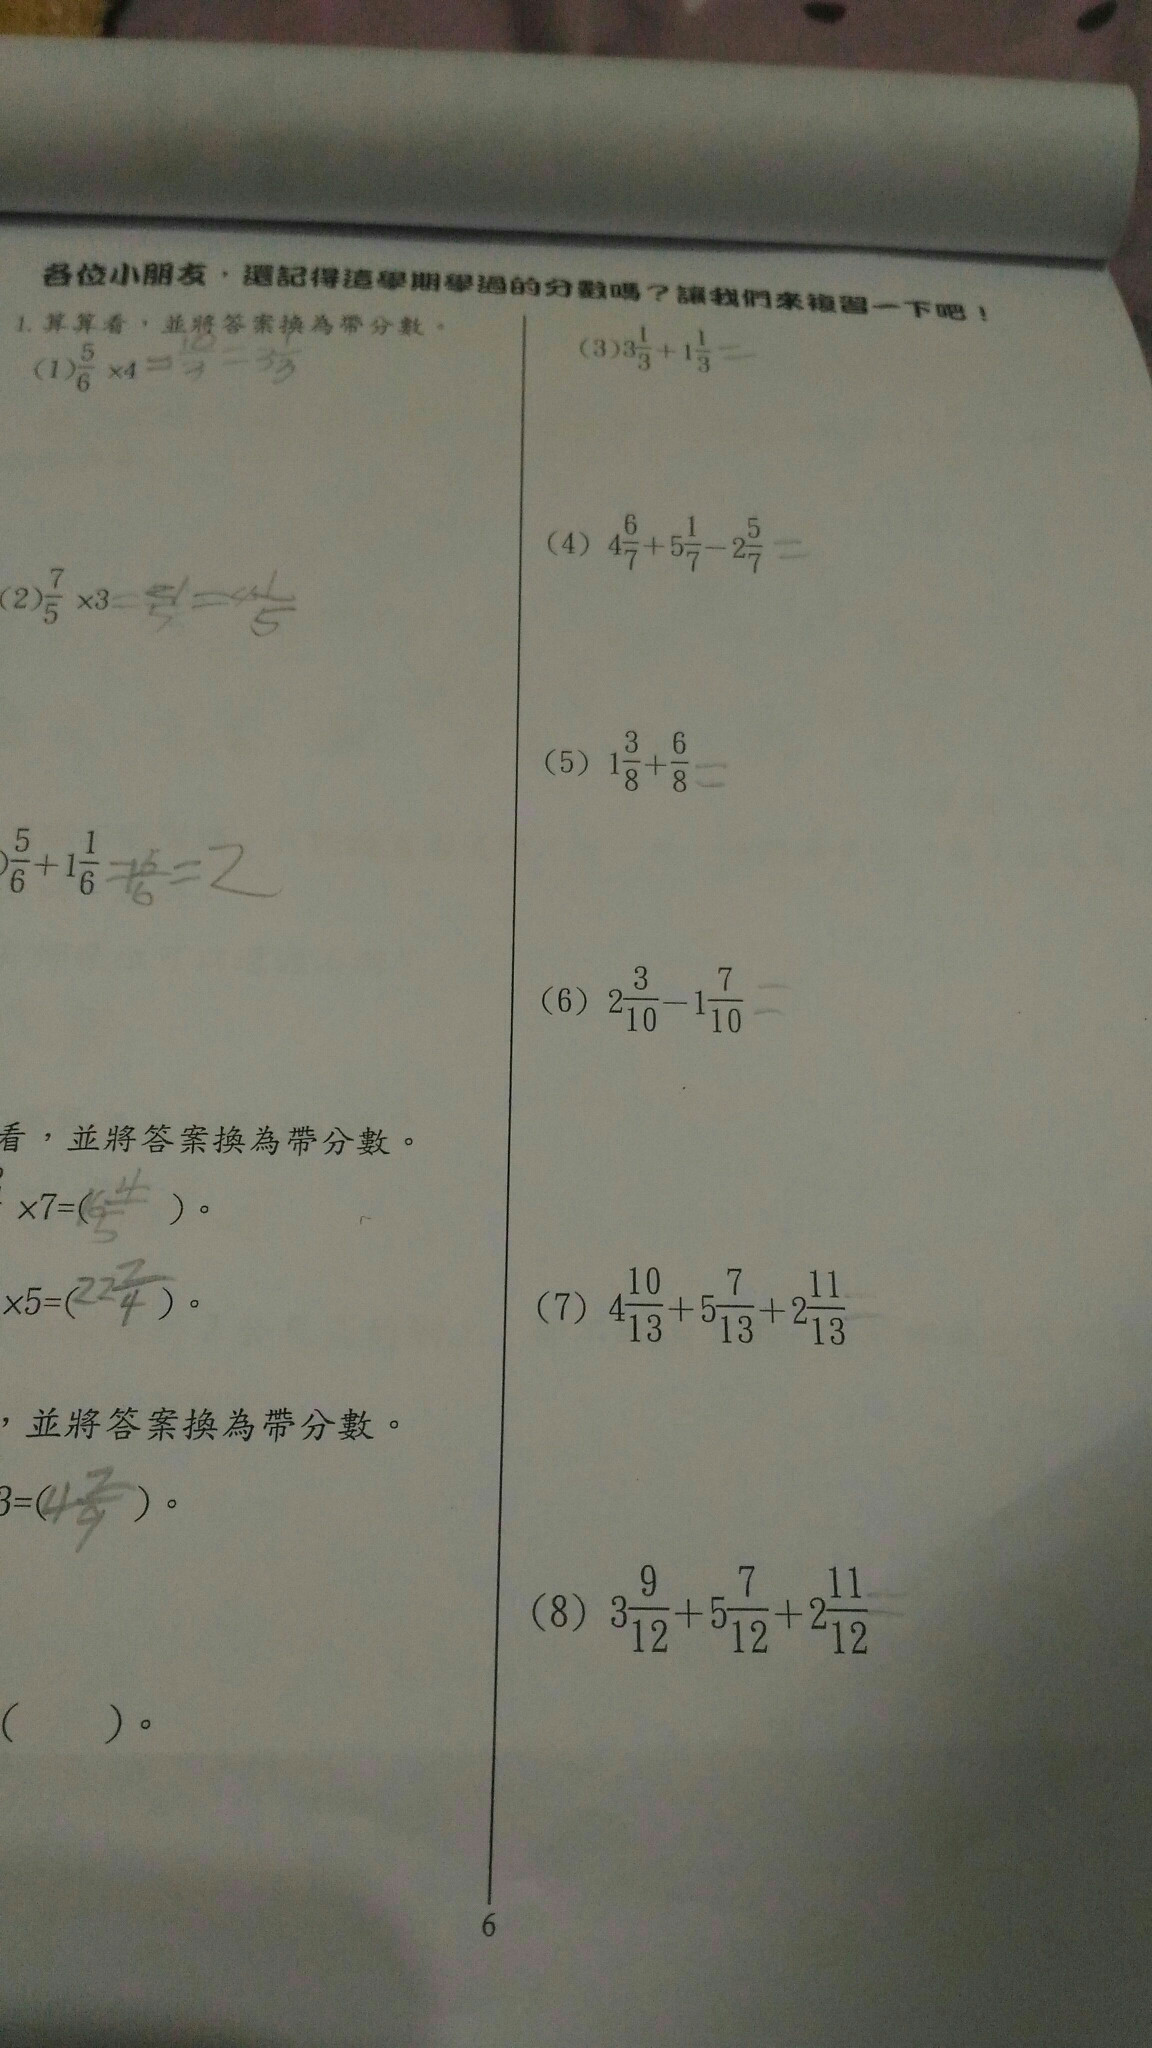 各位小朋友，還記得這學期學過的分數嗎？讓我們來複習一下吧！
1. 算算看，並將答案換為帶分數。
(1) 5/6 ×4 = 10/3 = 3 1/3
(2) 7/5 ×3 = 21/5 = 4 1/5
) 5/6 + 1 1/6 = 1 6/6 = 2
看，並將答案換為帶分數。
×7=(16 4/5)。
×5=(22 2/4)。
，並將答案換為帶分數。
3=(4 2/9)。
( )。
(3) 3 1/3 + 1 1/3 =
(4) 4 6/7 + 5 1/7 − 2 5/7 =
(5) 1 3/8 + 6/8 =
(6) 2 3/10 − 1 7/10 =
(7) 4 10/13 + 5 7/13 + 2 11/13 =
(8) 3 9/12 + 5 7/12 + 2 11/12 =
6